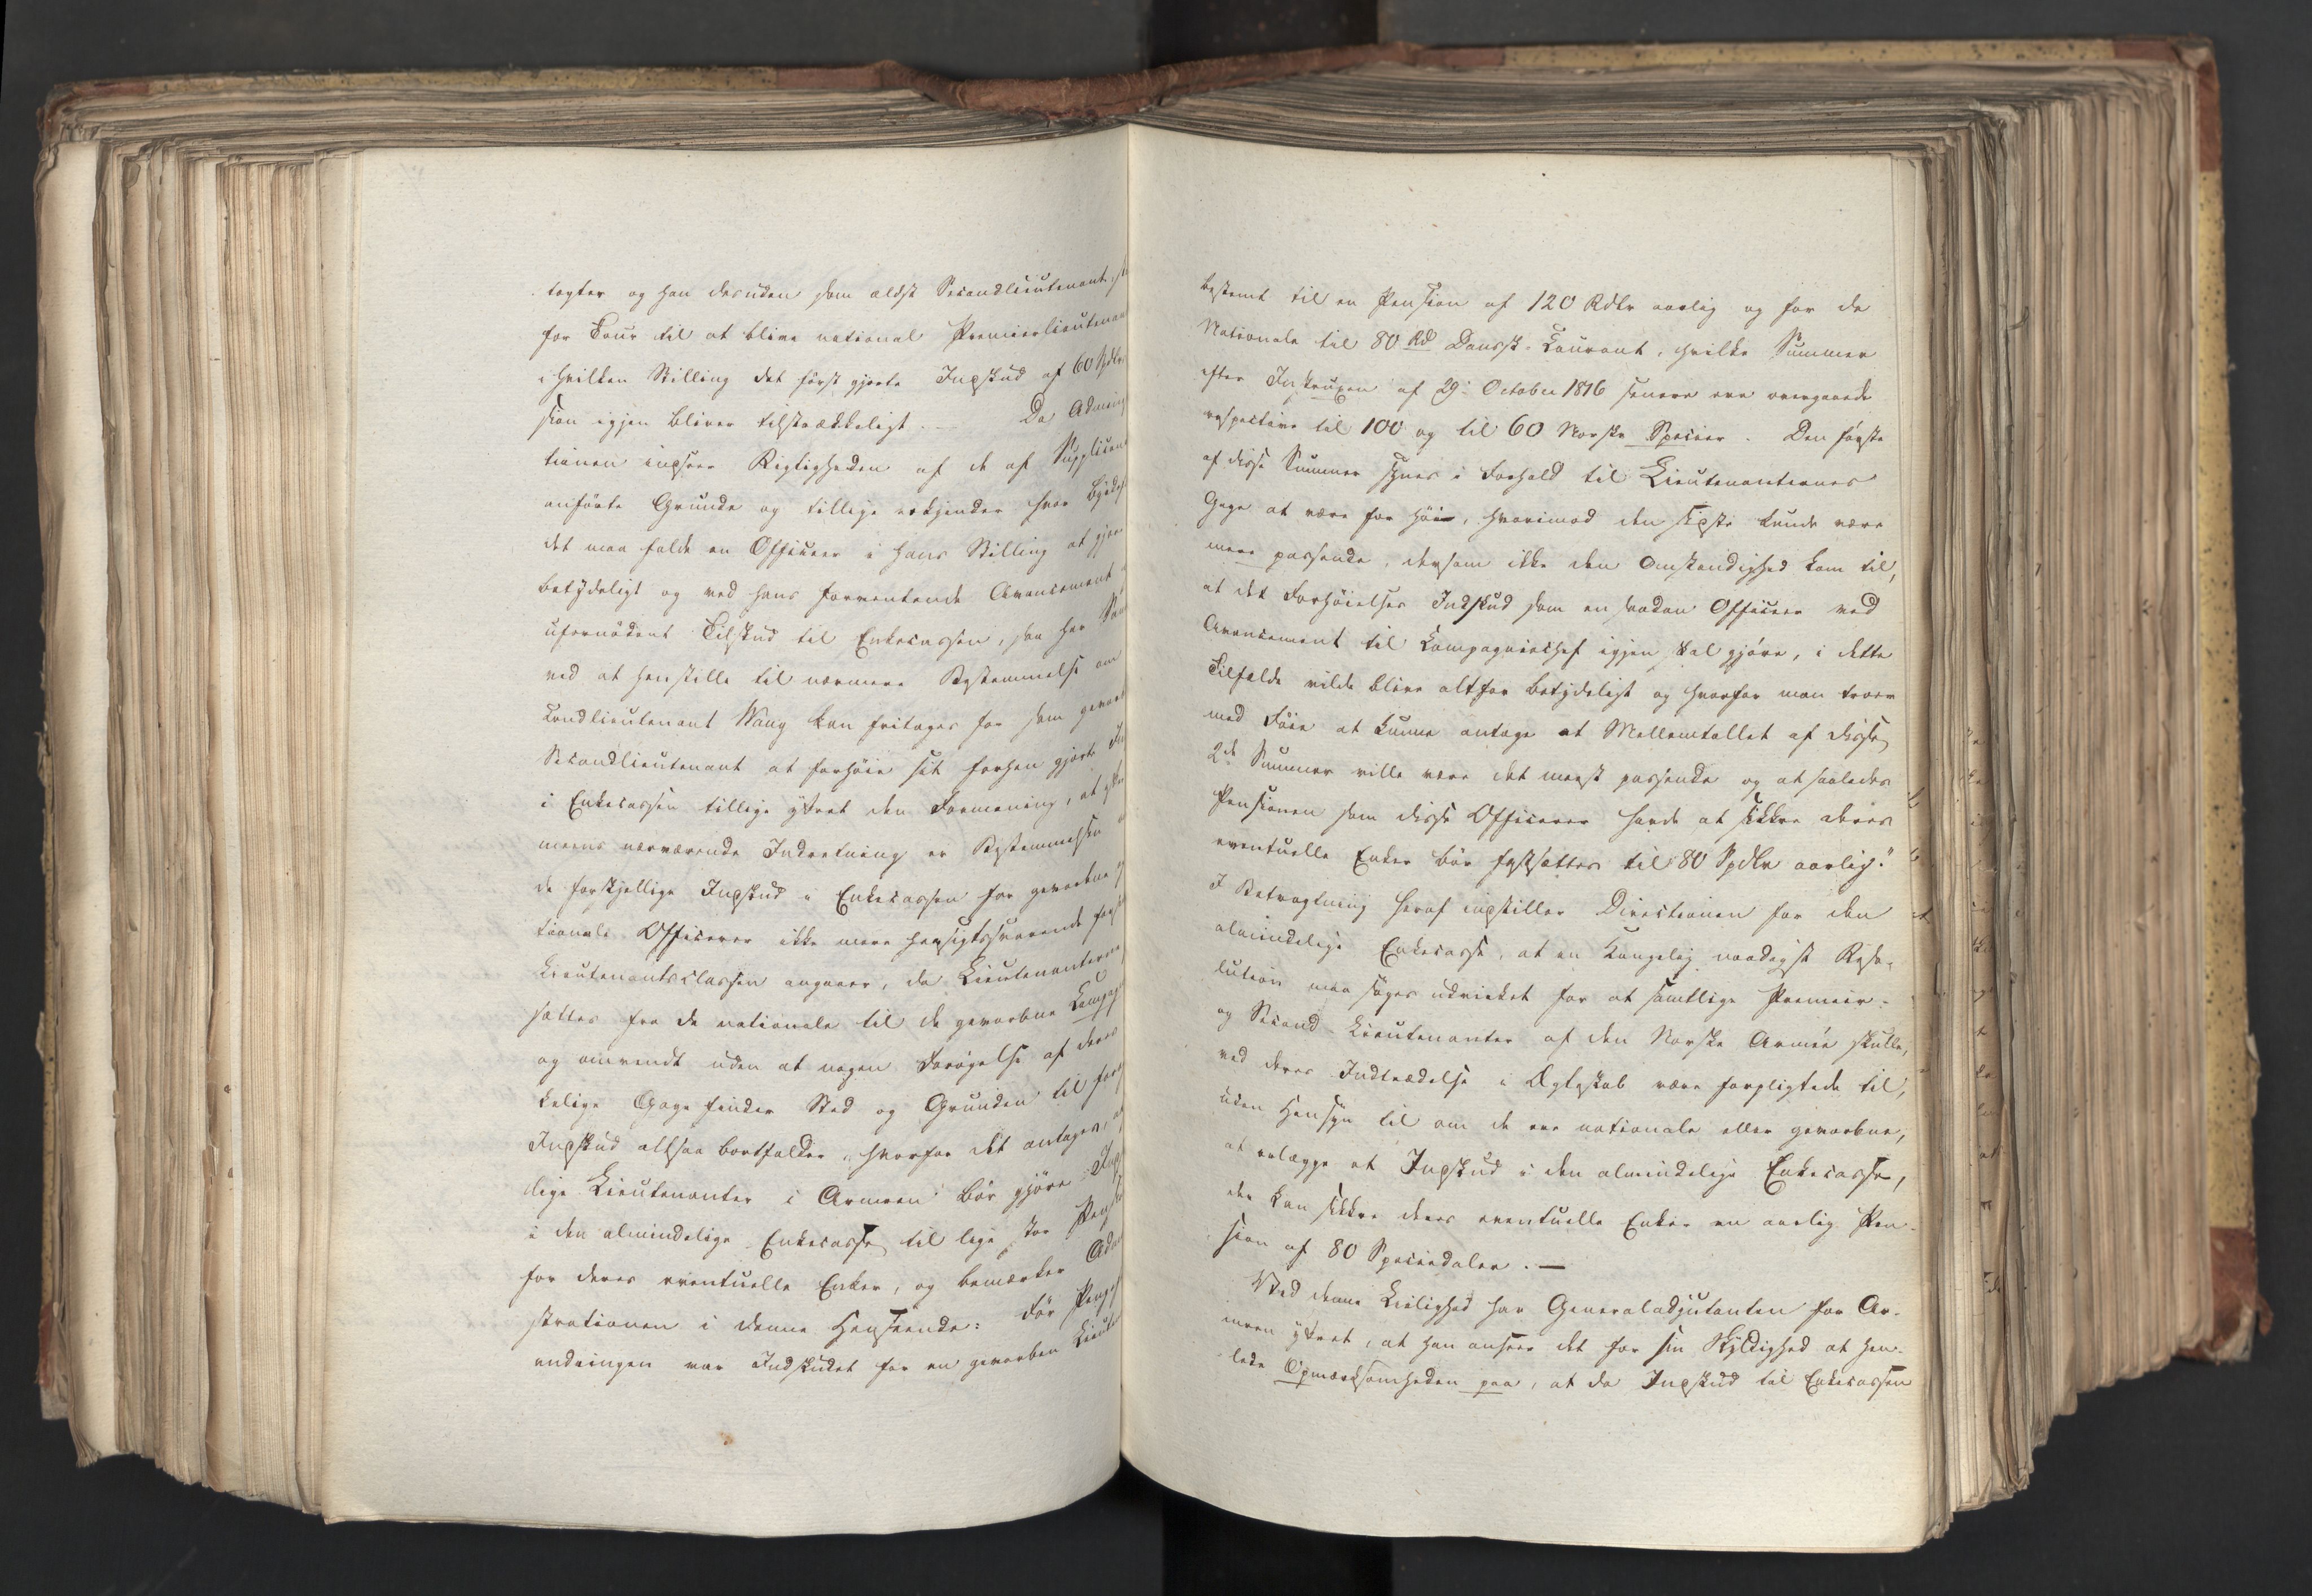 tagter og han desuden som ældst Secondlieutenant st
for Tour til at blive national Premierlieutenan
i hvilken Stilling det først gjorte Indskud af 60 Spdlr
sion igjen bliver tilstrækkeligt. — Da Admini
tionen indseer Rigtigheden af de af Supplican
anførte Grunde og tillige erkjender hvor Byrde
det maa falde en Officeer i hans Stilling at gjør
betydeligt og ved hans forventende Avancement
ufornødent Tilskud til Enkecassen, saa har
ved at henstille til nærmere Bestemmelse om
condlieutenant Wang kan fritages for som gevor
Secondlieutenant at forhøie sit forhen gjort In
i Enkecassen tillige yttret den Formening, at
meens nærværende Indretning er Bestemmelsen
de forskjellige Indskud i Enkecassen for gevorbne
tionale Officerer ikke mere hensigtssvarende for
Lieutenantsclassen angaaer, da Lieutenanterne
sættes fra de nationale til de gevorbne Compag
og omvendt uden at nogen Forøgelse af deres
kelige Gage finder Sted og Grunden til for
Indskud altsaa bortfalder, hvorfor det antages, at
lige Lieutenanter i Armeen bør gjøre Ind
i den almindelige Enkecasse til lige stor Pensi
for deres eventuelle Enker, og bemærker Admi
strationen i denne Henseende: Før Penge
andringen var Indskudet for en gevorben Lieute
bestemt til en Pension af 120 Rdlr aarlig og for de
Nationale til 80 Rd Dansk Courant, hvilke Summer
efter Instruxen af 29. October 1816 senere ere overgaaede
respective til 100 og til 60 Norske Specier. Den første
af disse Summer synes i Forhold til Lieutenanternes
Gage at være for høi, hvorimod den sidste kunde være
mere passende, dersom ikke den Omstændighed kom til,
at det Forhøielses Indskud som en saadan Officeer ved
Avancement til Compagniechef igjen skal gjøre, i dette
Tilfælde vilde blive altfor betydeligt og hvorfor man troer
med Føie at kunne antage at Mellemtallet af disse
2de Summer ville være det meest passende og at saaledes
Pensionen som disse Officerer havde at sikkre deres
eventuelle Enker bør fastsættes til 80 Spdlr aarlig."
I Betragtning heraf indstiller Directionen for den
almindelige Enkecasse, at en Kongelig naadigst Reso-
lution maa søges udvirket for at samtlige Premier-
og Second-Lieutenanter af den Norske Armée skulle,
ved deres Indtrædelse i Ægteskab være forpligtede til,
uden Hensyn til om de ere nationale eller gevorbne,
at erlægge et Indskud i den almindelige Enkecasse,
der kan sikkre deres eventuelle Enker en aarlig Pen-
sion af 80 Speciedaler. —
Ved denne Leilighed har Generaladjutanten for Ar-
meen yttret, at han anseer det for sin Skyldighed at hen-
lede Opmærksomheden paa, at da Indskud til Enkecassen